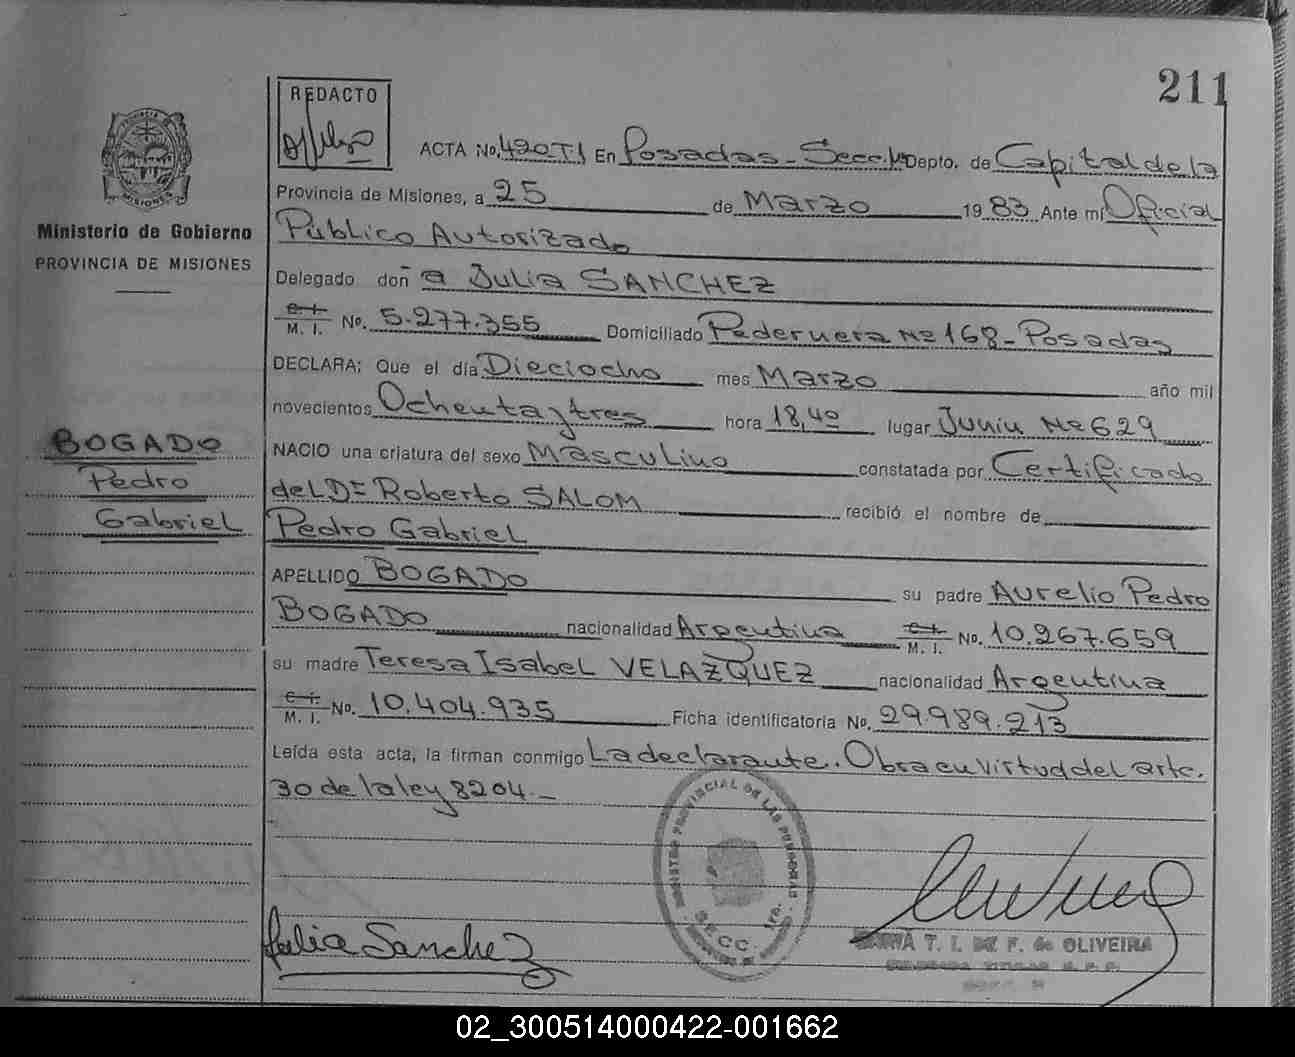 211
REDACTO
ACTA No. 420 T I En Posadas - Secc. 1ª Depto. de Capital de la
Provincia de Misiones, a 25 de Marzo 1983 Ante mí Oficial
Público Autorizado
Delegado doñ a Julia SANCHEZ
C. I. M. I. No. 5.277.355 Domiciliado Pedernera Nº 168 - Posadas
DECLARA: Que el día Dieciocho mes Marzo año mil
novecientos Ochenta y tres hora 18,40 lugar Junin Nº 629
NACIO una criatura del sexo Masculino constatada por Certificado
del Dr Roberto SALOM recibió el nombre de
Pedro Gabriel
APELLIDO BOGADO su padre Aurelio Pedro
BOGADO nacionalidad Argentina C. I. M. I. No. 10.267.659
su madre Teresa Isabel VELAZQUEZ nacionalidad Argentina
C. I. M. I. No. 10.404.935 Ficha identificatoria No. 29.989.213
Leída esta acta, la firman conmigo La declarante. Obra en virtud del artc.
30 de la ley 8204.-
Ministerio de Gobierno
PROVINCIA DE MISIONES
BOGADO
Pedro
Gabriel
PROVINCIAL DE LAS PERSONAS
SECC. 1ra.
Julia Sanchez
T. I. DE F. de OLIVEIRA
02_300514000422-001662